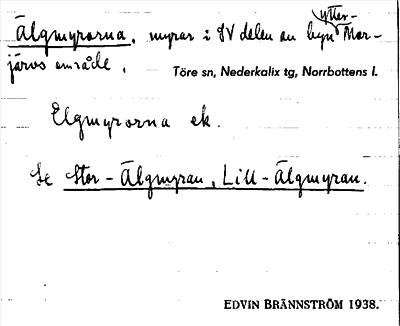 Älgmyrorna, myrar i SV delen av byn Ytter-Mor-
järvs område.
Töre sn, Nederkalix tg, Norrbottens l.
Elgmyrorna ek.
Se Stor-Älgmyran, Lill-Älgmyran.
EDVIN BRÄNNSTRÖM 1938.